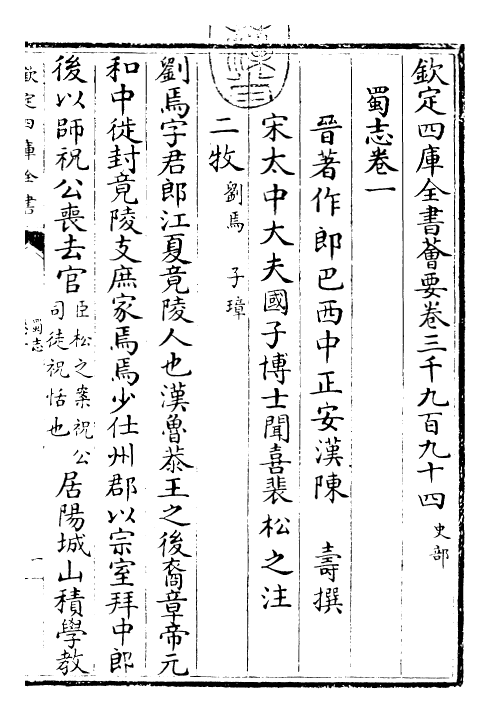 欽定四庫全書薈要卷三千九百九十四 史部
蜀志卷一
晉著作郎巴西中正安漢陳 壽撰
宋太中大夫國子博士聞喜裴松之注
二牧 劉焉 子璋
劉焉字君郎江夏竟陵人也漢魯恭王之後裔章帝元
和中徙封竟陵支庶家焉焉少仕州郡以宗室拜中郎
後以師祝公喪去官 臣松之案祝公
司徒祝恬也 居陽城山積學教
欽定四庫全書
蜀志